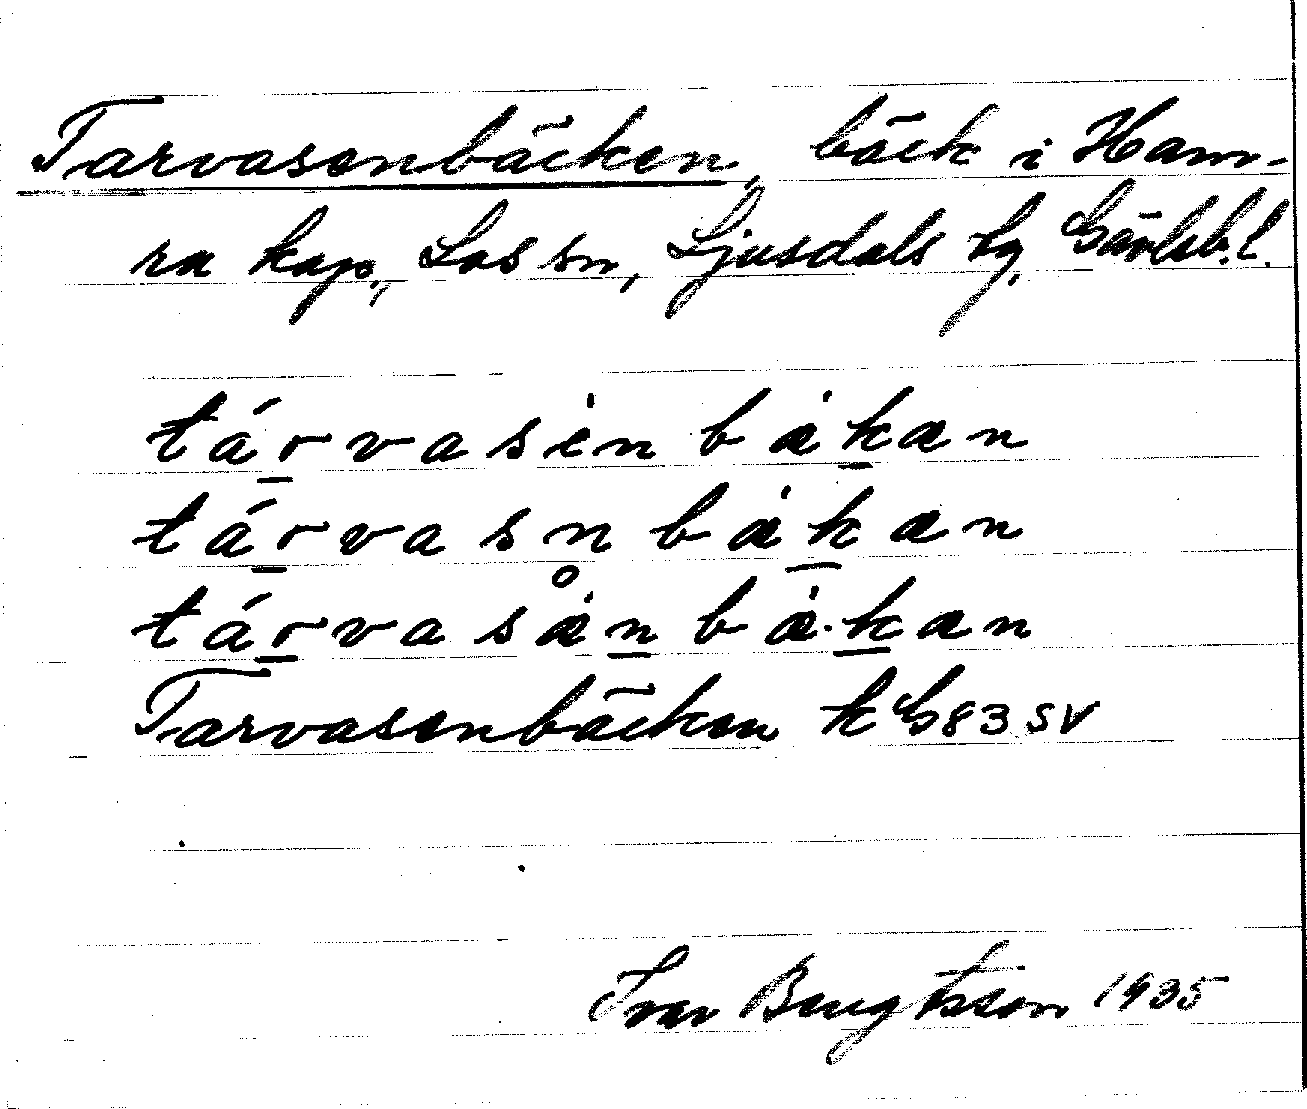 Tarvasenbäcken, bäck i Ham-
ra kap., Los sn, Ljusdals tg, Gävleb. l.
tárvasèn bàkan
tárvasn bàkan
tárvasån bà·kan
Tarvasenbäcken k G83 SV
Ivar Bengtsson 1935